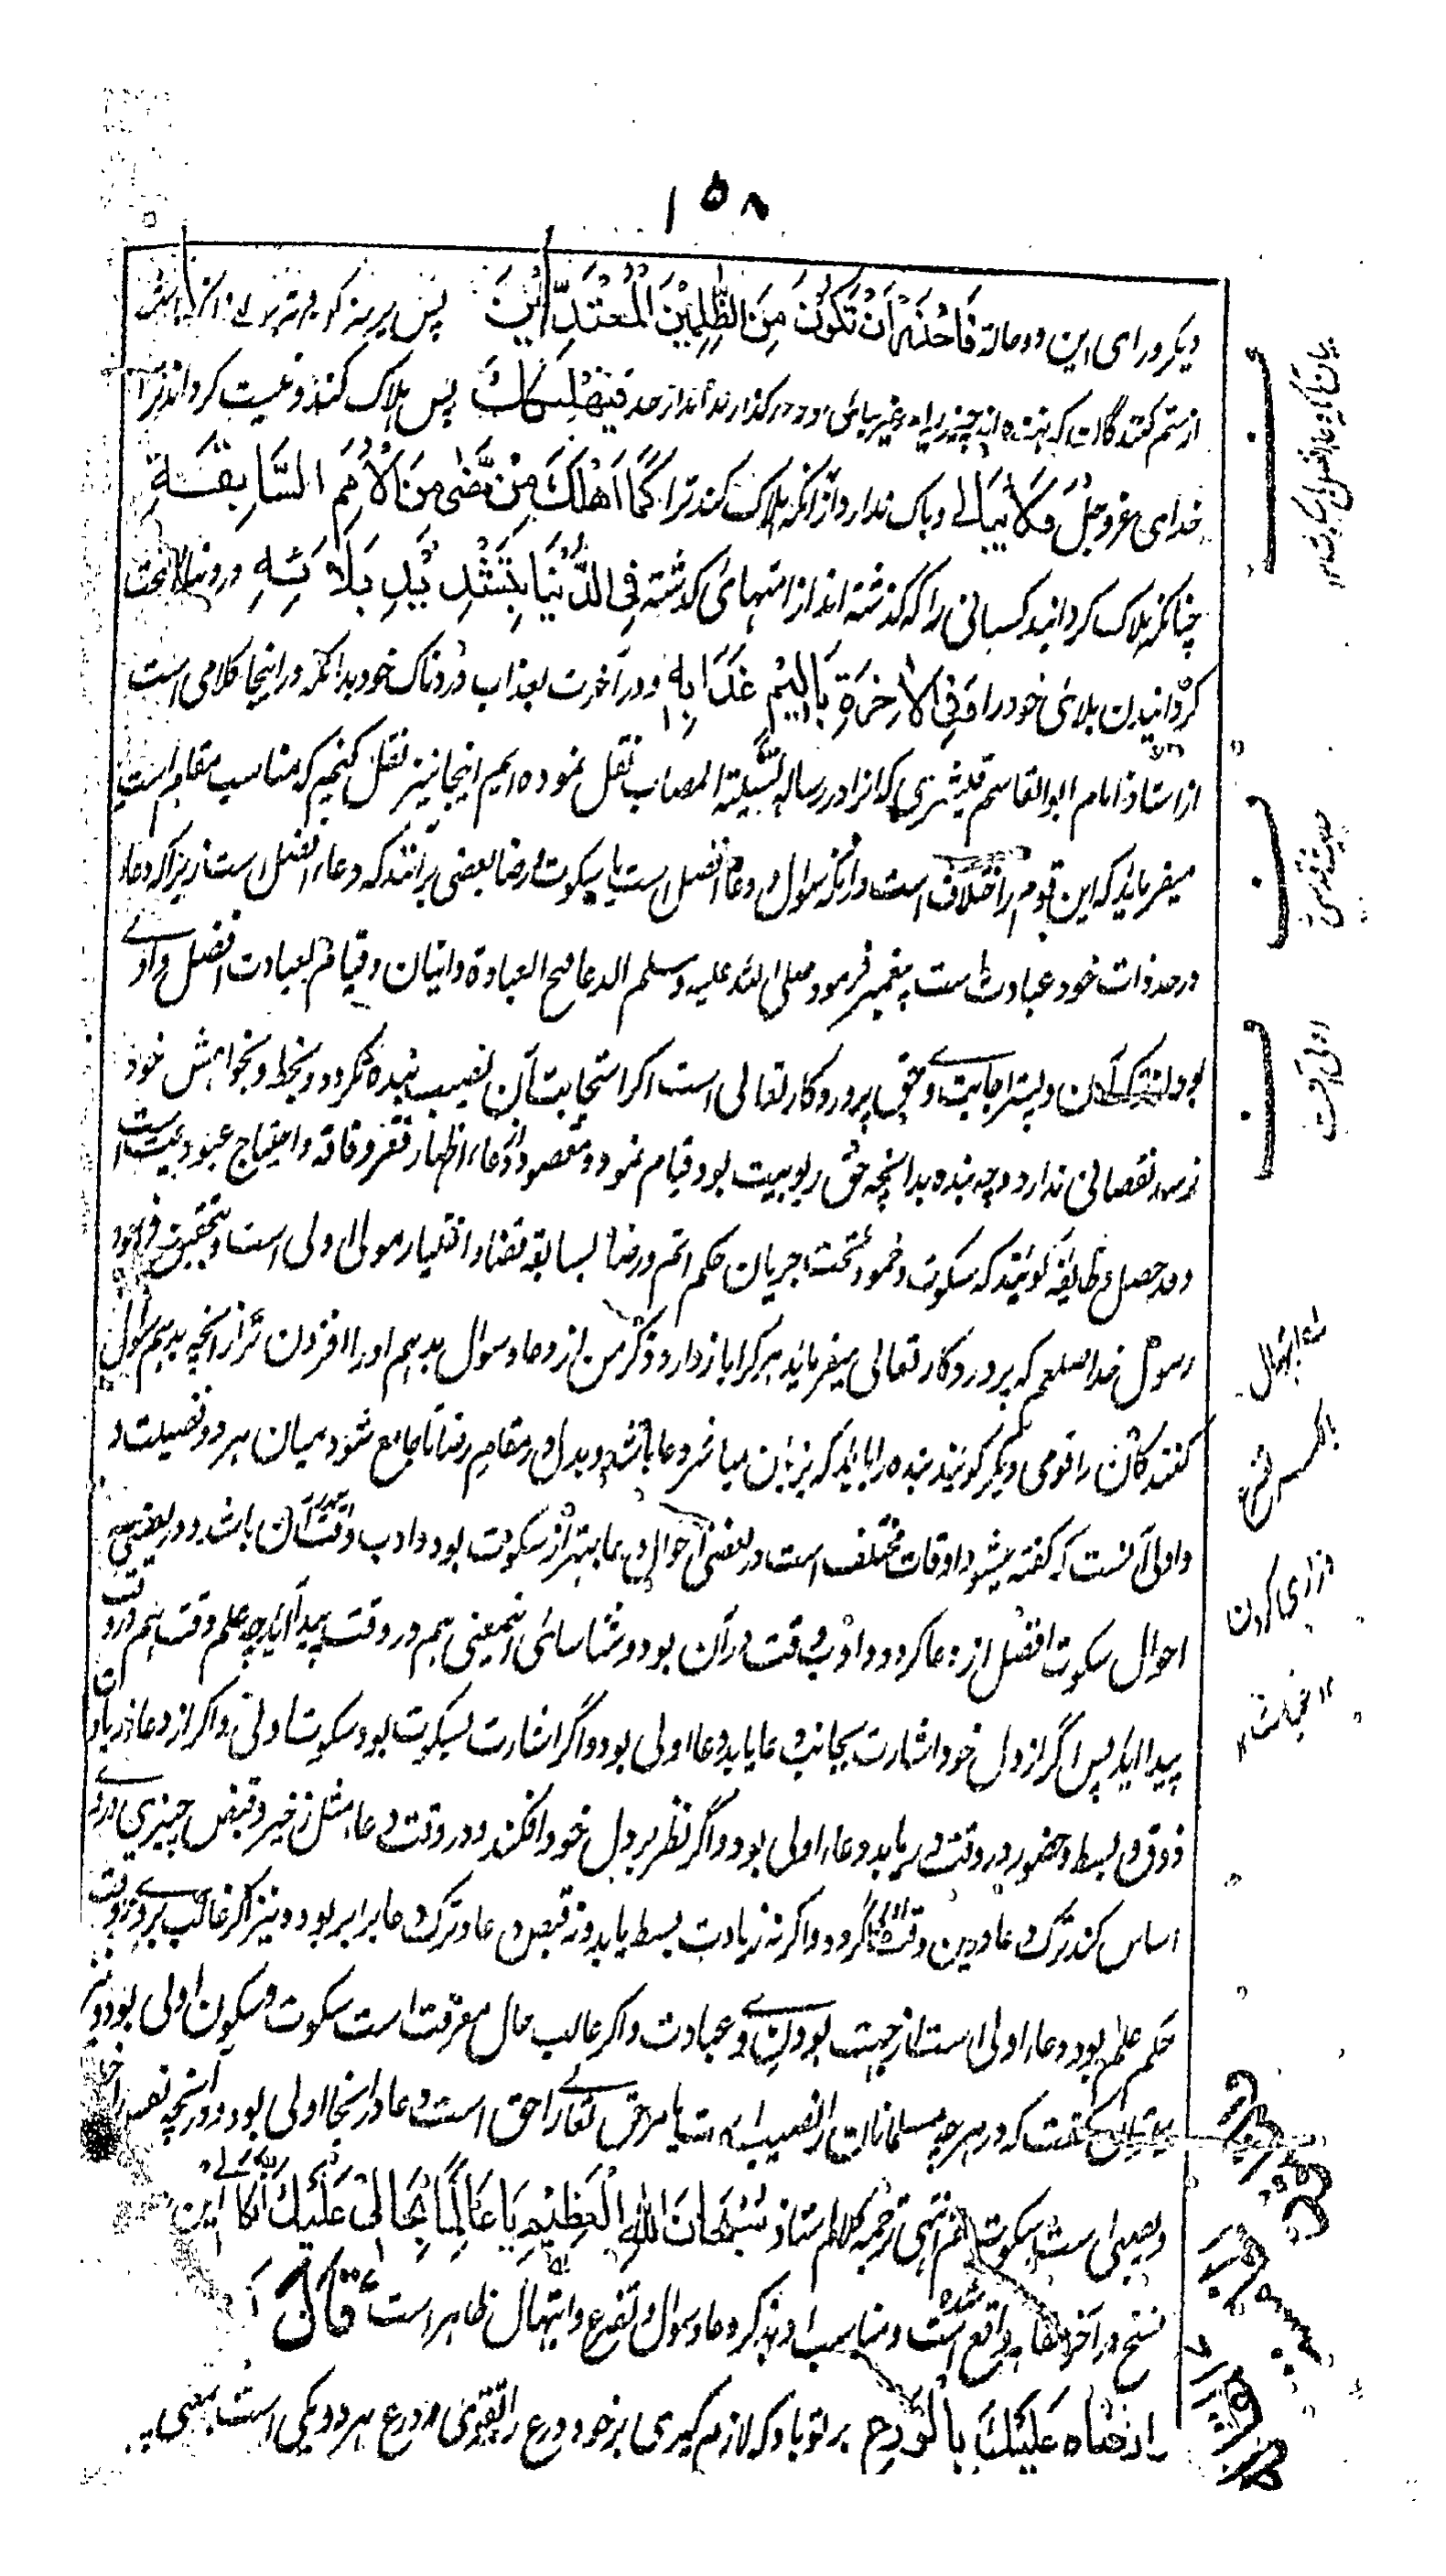 ۱۵۸
دیگر ورای این دو حالة فَاحْذَرْ أَنْ تَكُوْنَ مِنَ الظّٰلِمِيْنَ الْمُعْتَدِيْنَ پس پرهیز کن
از ستم کنندگان که نهنده اند چیز را در غیر جای او و در گذارنده اند از حد فَيُهْلِكَكَ پس هلاک کند و نیست گرداند ترا
خدای عزوجل وَلَا يُبَالِي و باک ندارد از آنکه هلاک کند ترا كَمَا أَهْلَكَ مَنْ مَّضٰى مِنَ الْأُمَمِ السَّابِقَةِ
چنانکه هلاک گردانید کسانی را که گذشته اند از امتهای گذشته فِي الدُّنْيَا بِتَشْدِيْدِ بَلَائِهِ در دنیا
گردانیدن بلای خود را وَفِي الْاٰخِرَةِ بِأَلِيْمِ عَذَابِهٖ و در آخرت بعذاب دردناک خود بدانکه در اینجا کلامی است
از استاذ امام ابو القاسم قشیری که آنرا در رساله تسلیة المصاب نقل نموده ایم اینجا نیز نقل کنیم که مناسب مقام است
میفرماید که این قوم را اختلاف است در آنکه سوال و دعا افضل است یا سکوت و رضا بعضی برانند که دعا افضل است زیرا که دعا
در حد ذات خود عبادت است پیغمبر فرمود صلی الله علیه وسلم الدعا مخ العبادة و اتیان و قیام بعبادت افضل و اولی
بود از ترک آن و پستر اجابت دعا حق پروردگار تعالی است اگر استجابت آن نصیب بنده نگردد و بحظ و بخواهش خود
نرسد نقصانی ندارد چه بنده بدانچه حق ربوبیت بود قیام نمود و مقصود از دعا اظهار فقر و فاقه و احتیاج عبودیت است
و طایفه گویند که سکوت و خمود تحت جریان حکم اتم و رضا بسابقه قضا و اختیار مولی اولی است و بتحقیق فرمود
رسول خدا صلعم که پروردگار تعالی میفرماید هر کرا باز دارد ذکر من از دعا و سوال بدهم او را افزون تر از آنچه بدهم سوال
کنندگان را قومی دیگر گویند بنده را باید که بزبان مباشر دعا باشد و بدل در مقام رضا تا جامع شود میان هر دو فضیلت و
و اولی آنست که گفته میشود اوقات مختلف است در بعضی احوال دعا بهتر از سکوت بود و ادب وقت در آن باشد و در بعضی
احوال سکوت افضل از دعا گردد و ادب وقت در آن بود و شناسائی اینمعنی هم در وقت پیدا آید چه علم وقت هم در وقت
پیدا آید پس اگر از دل خود اشارت بجانب دعا یابد دعا اولی بود و اگر اشارت بسکوت بود سکوت اولی و اگر از دعا زیادت
ذوق و بسط و حضور در وقت وی یابد دعا اولی بود و اگر نظر بر دل خود افکند و در وقت دعا مثل زجر و قبض چیزی در وی
احساس کند ترک دعا در این وقت اولی گردد و اگر نه زیادت بسط یابد و نه قبض دعا و ترک دعا برابر بود و نیز اگر غالب بر وی در وقت
حکم علم بود دعا اولی است از جهت بودن وی عبادت و اگر غالب حال معرفت است سکوت و سکون اولی بود و نیز
میتوان گفت که در هر چه مسلمانان را نصیب است یا مر حق تعالی را حق است دعا در انجا اولی بود و در آنچه نفس را حظ
و نصیبی است سکوت اتم انتهی ترجمه کلام استاذ سُبْحَانَ اللّٰهِ الْعَظِيْمِ يَا عَالِمًا بِحَالِيْ عَلَيْكَ اتِّكَالِيْ این
نسخ در آخر مقاله واقع شده است و مناسب او بذکر دعا و سوال و تضرع و ابتهال ظاهر است قَالَ
رضي الله عنه عَلَيْكَ بِالْوَرَعِ بر تو باد که لازم گیری بر خود ورع را تقوی و ورع هر دو یکی است بمعنی
اولی آنست
و زاری کردن